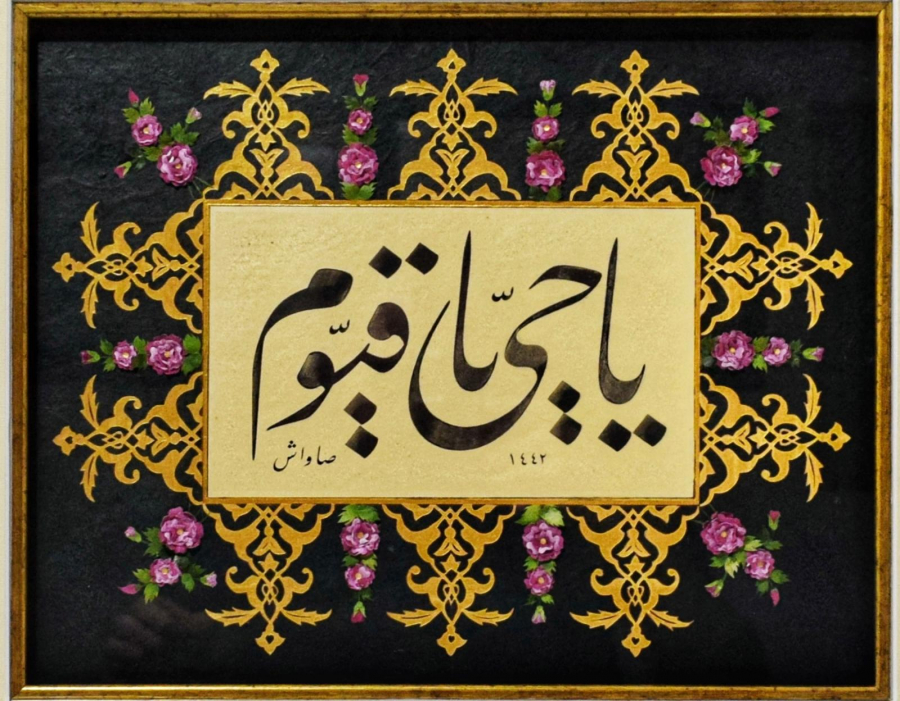 يا حيّ يا قيّوم
صاواش ١٤٤٢